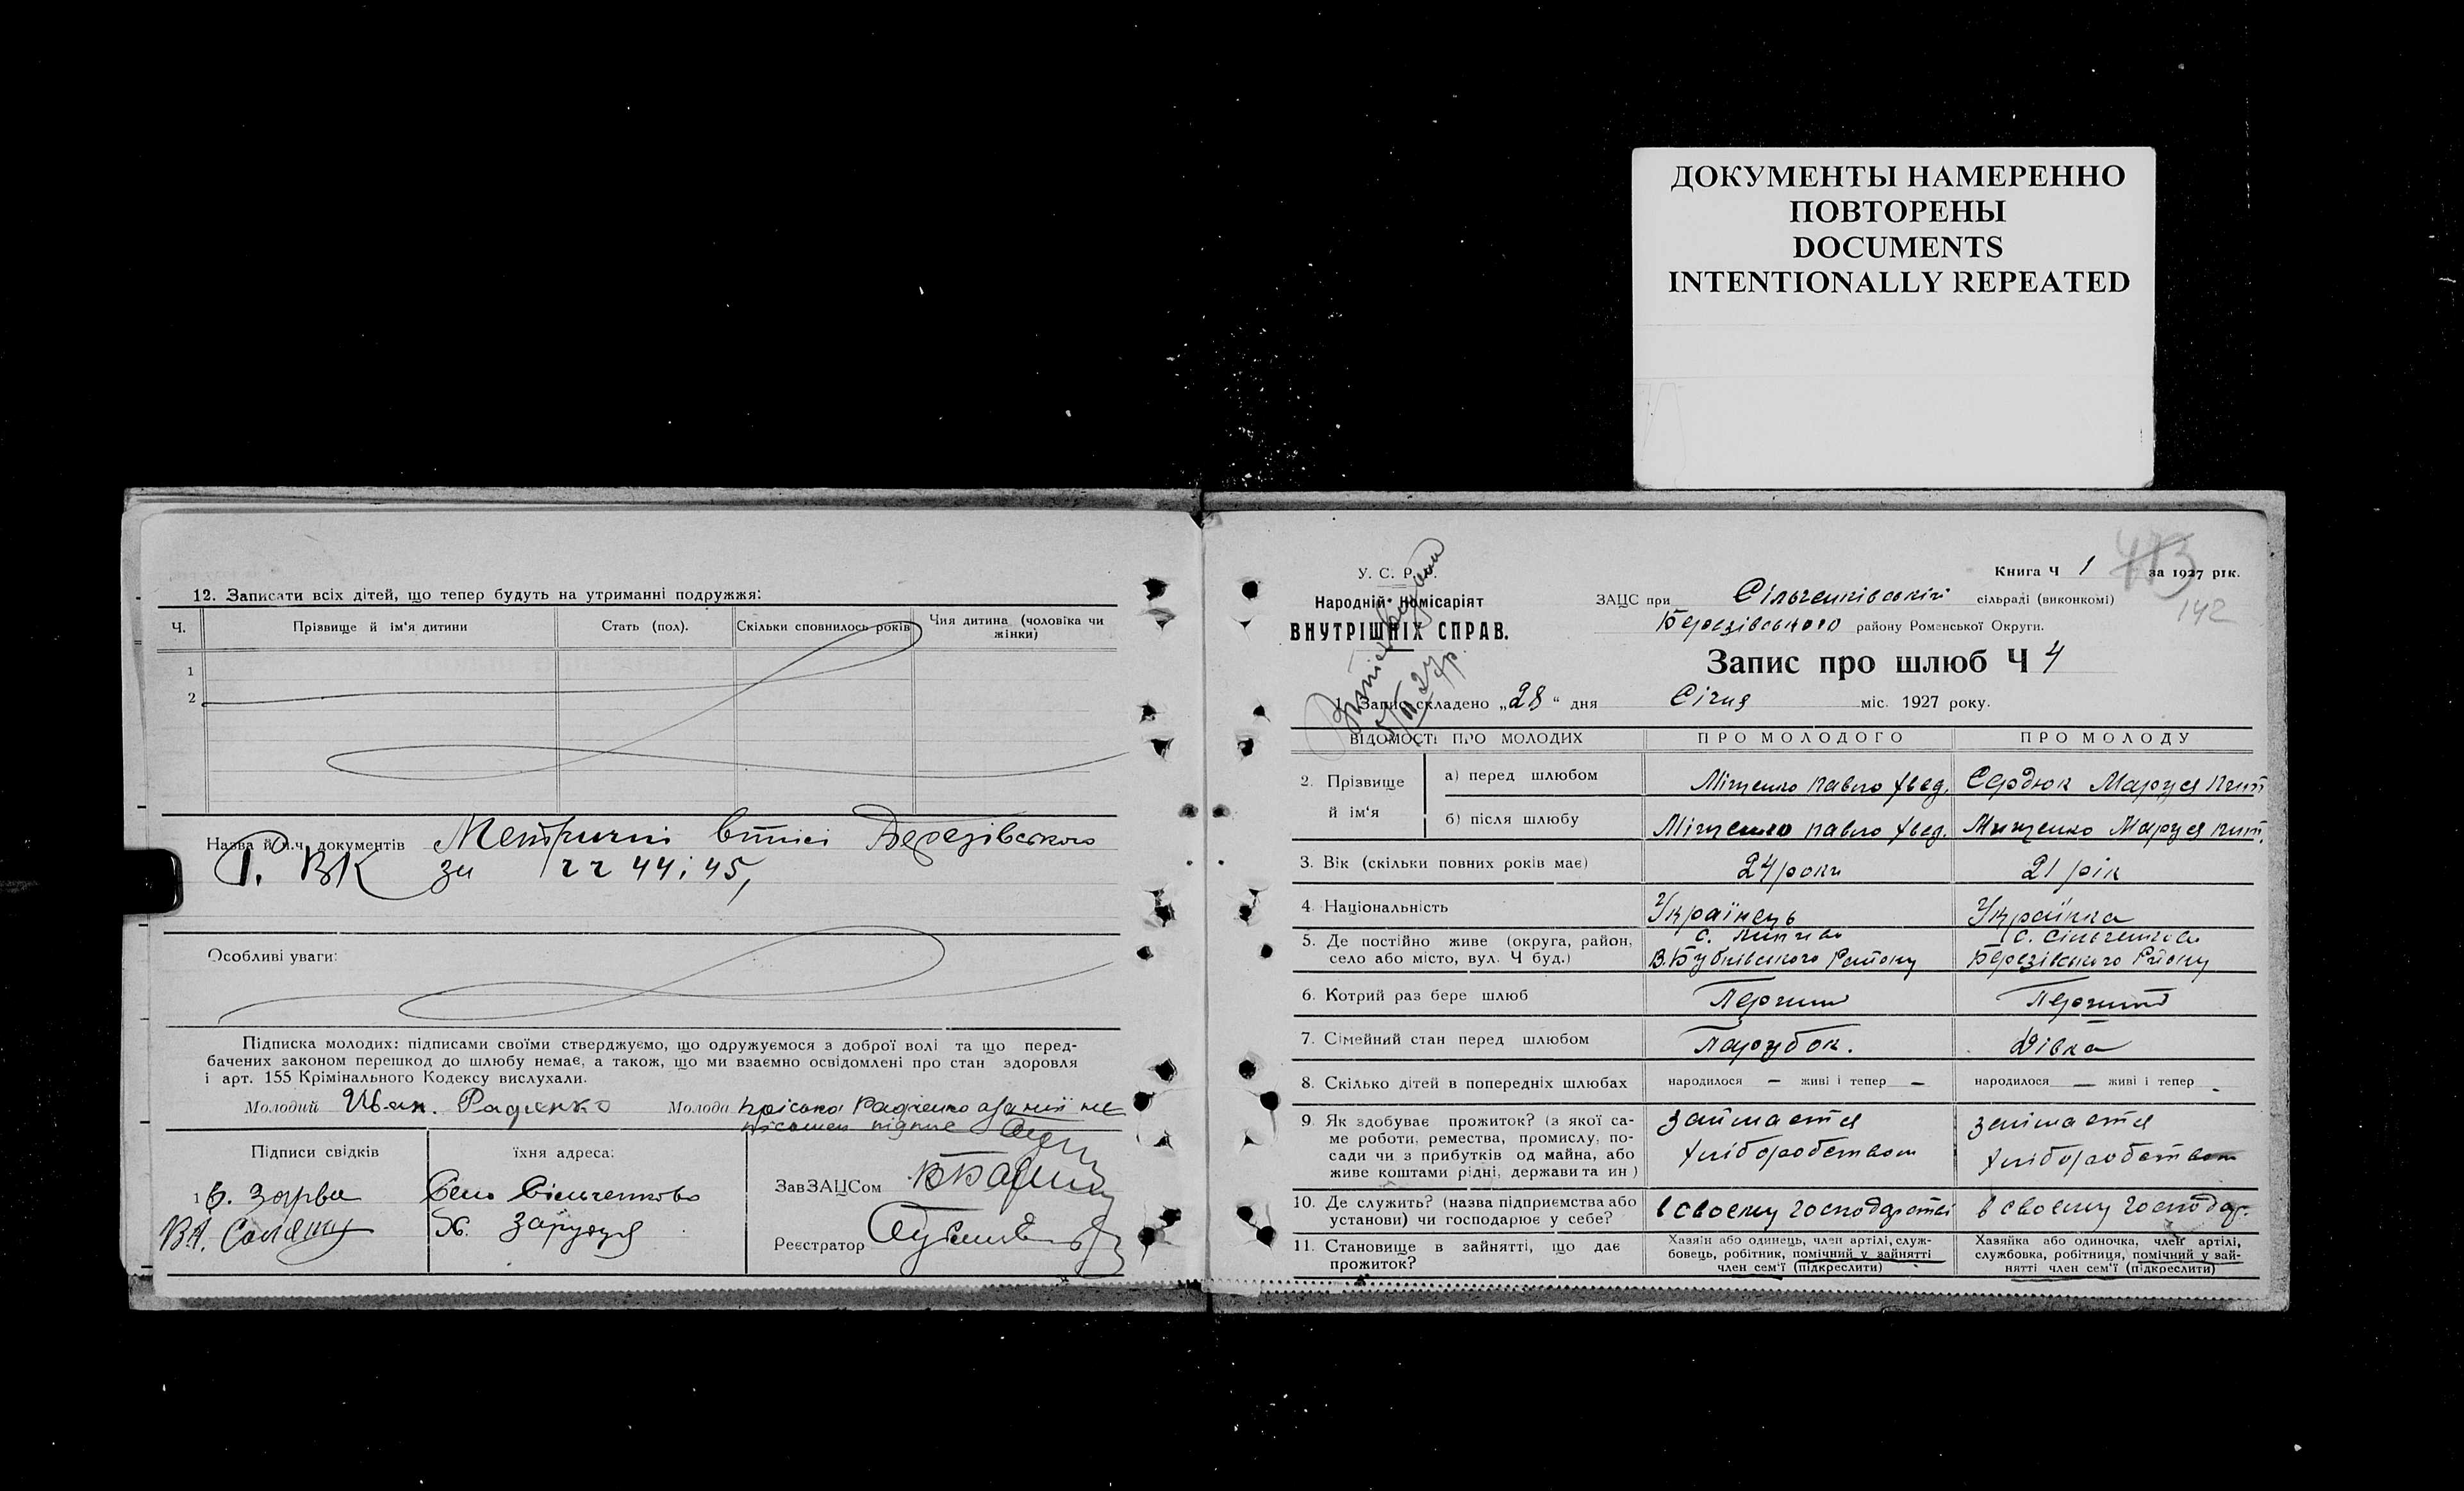 ДОКУМЕНТЫ НАМЕРЕННО
ПОВТОРЕНЫ
DOCUMENTS
INTENTIONALLY REPEATED
12. Записати всіх дітей, що тепер будуть на утриманні подружжя:
Ч. Прізвище й ім'я дитини Стать (пол). Скільки сповнилось років Чия дитина (чоловіка чи жінки)
1
2
Назва й ч.ч. документів Метричні втісі Березівського
Р. ВК за чч 44 і 45,
Особливі уваги:
Підписка молодих: підписами своїми стверджуємо, що одружуємося з доброї волі та що перед-
бачених законом перешкод до шлюбу немає, а також, що ми взаємно освідомлені про стан здоровля
і арт. 155 Крімінального Кодексу вислухали.
Молодий Иван. Радченко Молода Пріська Радченко
Підписи свідків їхня адреса:
1 Б. Зарва Село Сільченково
Х. Заруддя
ЗавЗАЦСом
Реєстратор
У. С. Р. Р.
Народній Комісаріят
ВНУТРІШНІХ СПРАВ.
Книга Ч 1 за 1927 рік.
413
142
ЗАЦС при Сільченківській сільраді (виконкомі)
Березівського району Роменської Округи.
Запис про шлюб Ч 4
1. Запис складено „28“ дня Січня міс. 1927 року.
ВІДОМОСТІ ПРО МОЛОДИХ ПРО МОЛОДОГО ПРО МОЛОДУ
2. Прізвище й ім'я
а) перед шлюбом Міщенко Павло Хвед. Сердюк Маруся
б) після шлюбу Міщенко Павло Хвед. Мищенко Маруся
3. Вік (скільки повних років має) 24 роки 21 рік
4. Національність Українець Українка
5. Де постійно живе (округа, район, с. с. Сільченкове
село або місто, вул. Ч буд.) В.Бубнівського Району Березівського Району
6. Котрий раз бере шлюб Перший Перший
7. Сімейний стан перед шлюбом Парубок. Дівка
8. Скілько дітей в попередніх шлюбах народилося — живі і тепер — народилося — живі і тепер -
9. Як здобуває прожиток? (з якої са- займается заїмается
ме роботи, ремества, промислу, по- хліборобством хліборобством
сади чи з прибутків од майна, або
живе коштами рідні, держави та ин)
10. Де служить? (назва підприємства або в своєму господарстві в своєму господар.
установи) чи господарює у себе?
11. Становище в зайнятті, що дає Хазяїн або одинець, член артілі, служ- Хазяйка або одиночка, член артілі,
прожиток? бовець, робітник, помічний у зайнятті службовка, робітниця, помічний у зай-
член сем'ї (підкреслити) нятті член сем'ї (підкреслити)